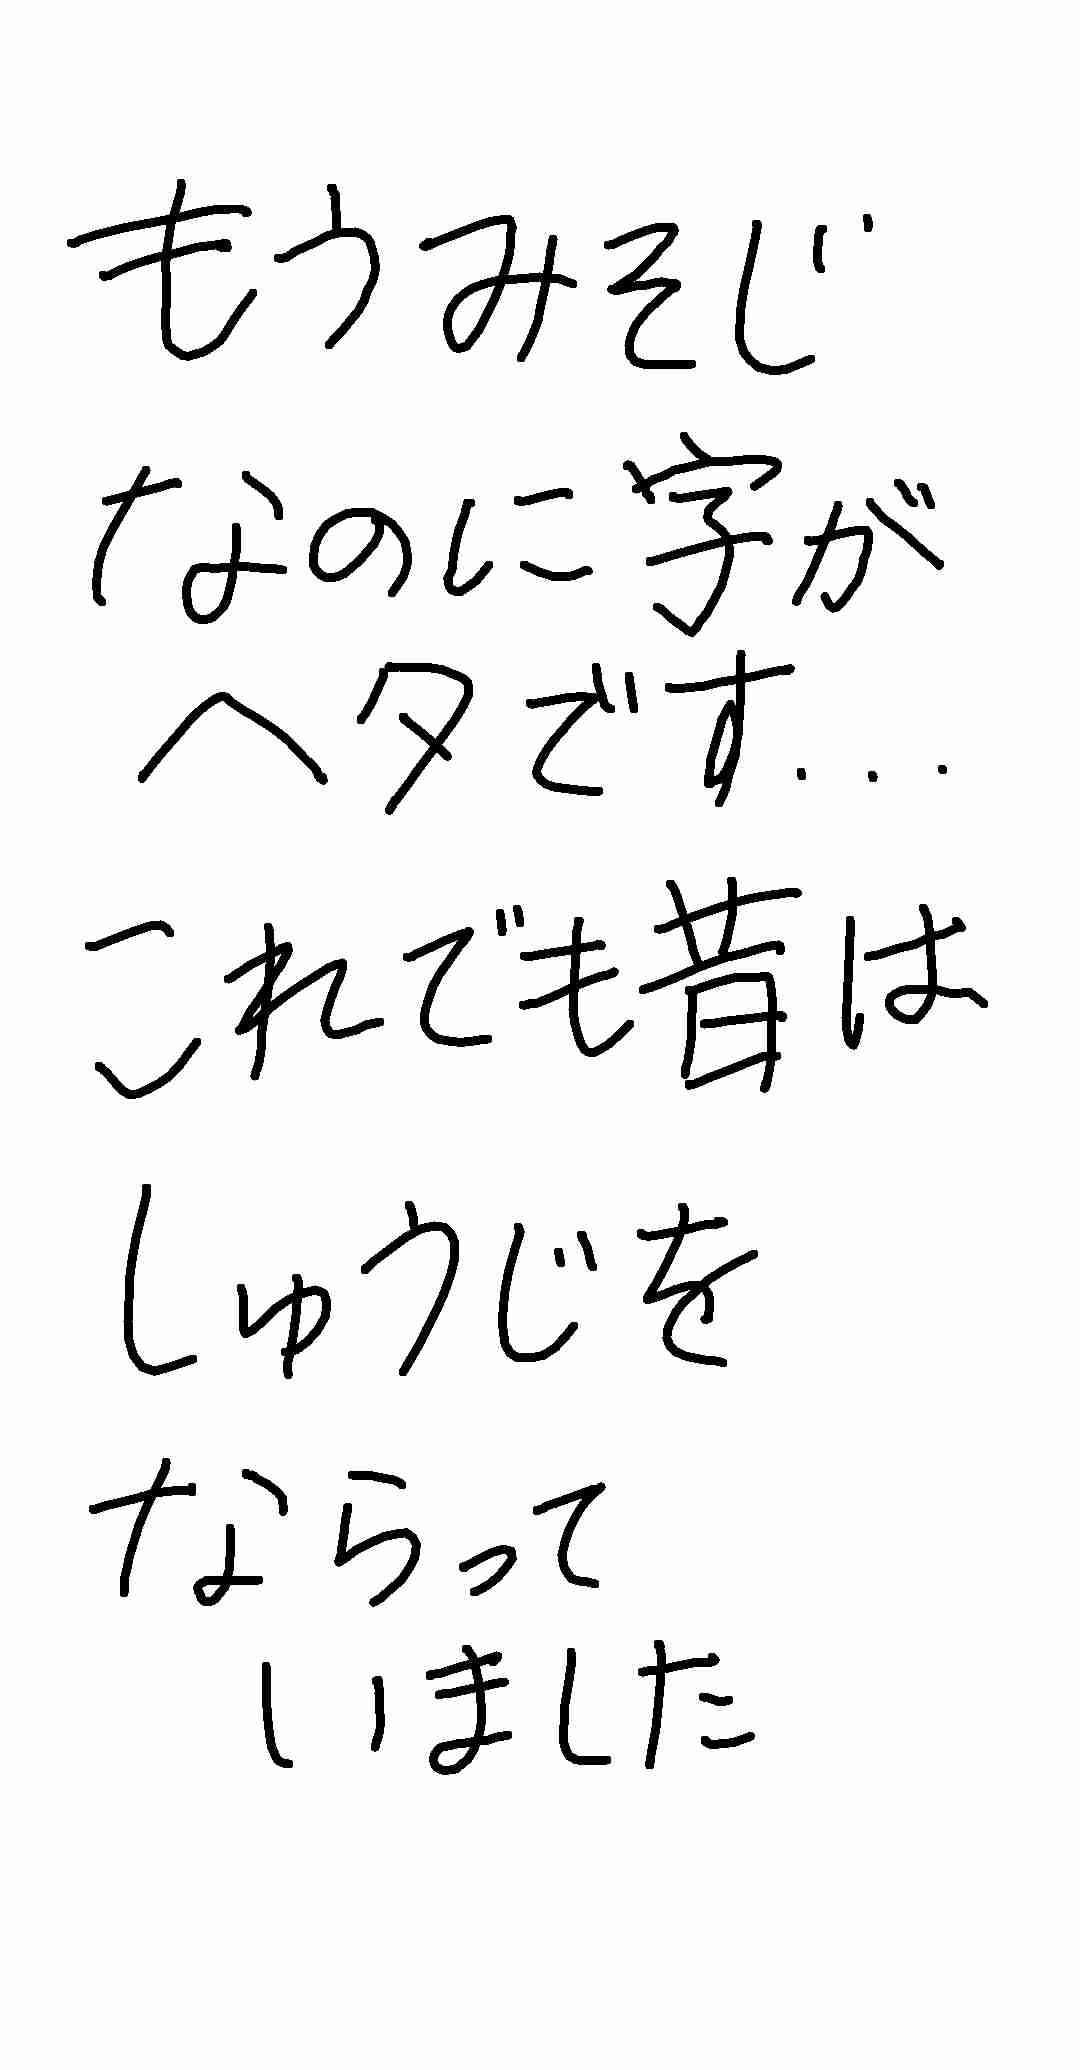 もうみそじ
なのに字が
ヘタです...
これでも昔は
しゅうじを
ならって
いました